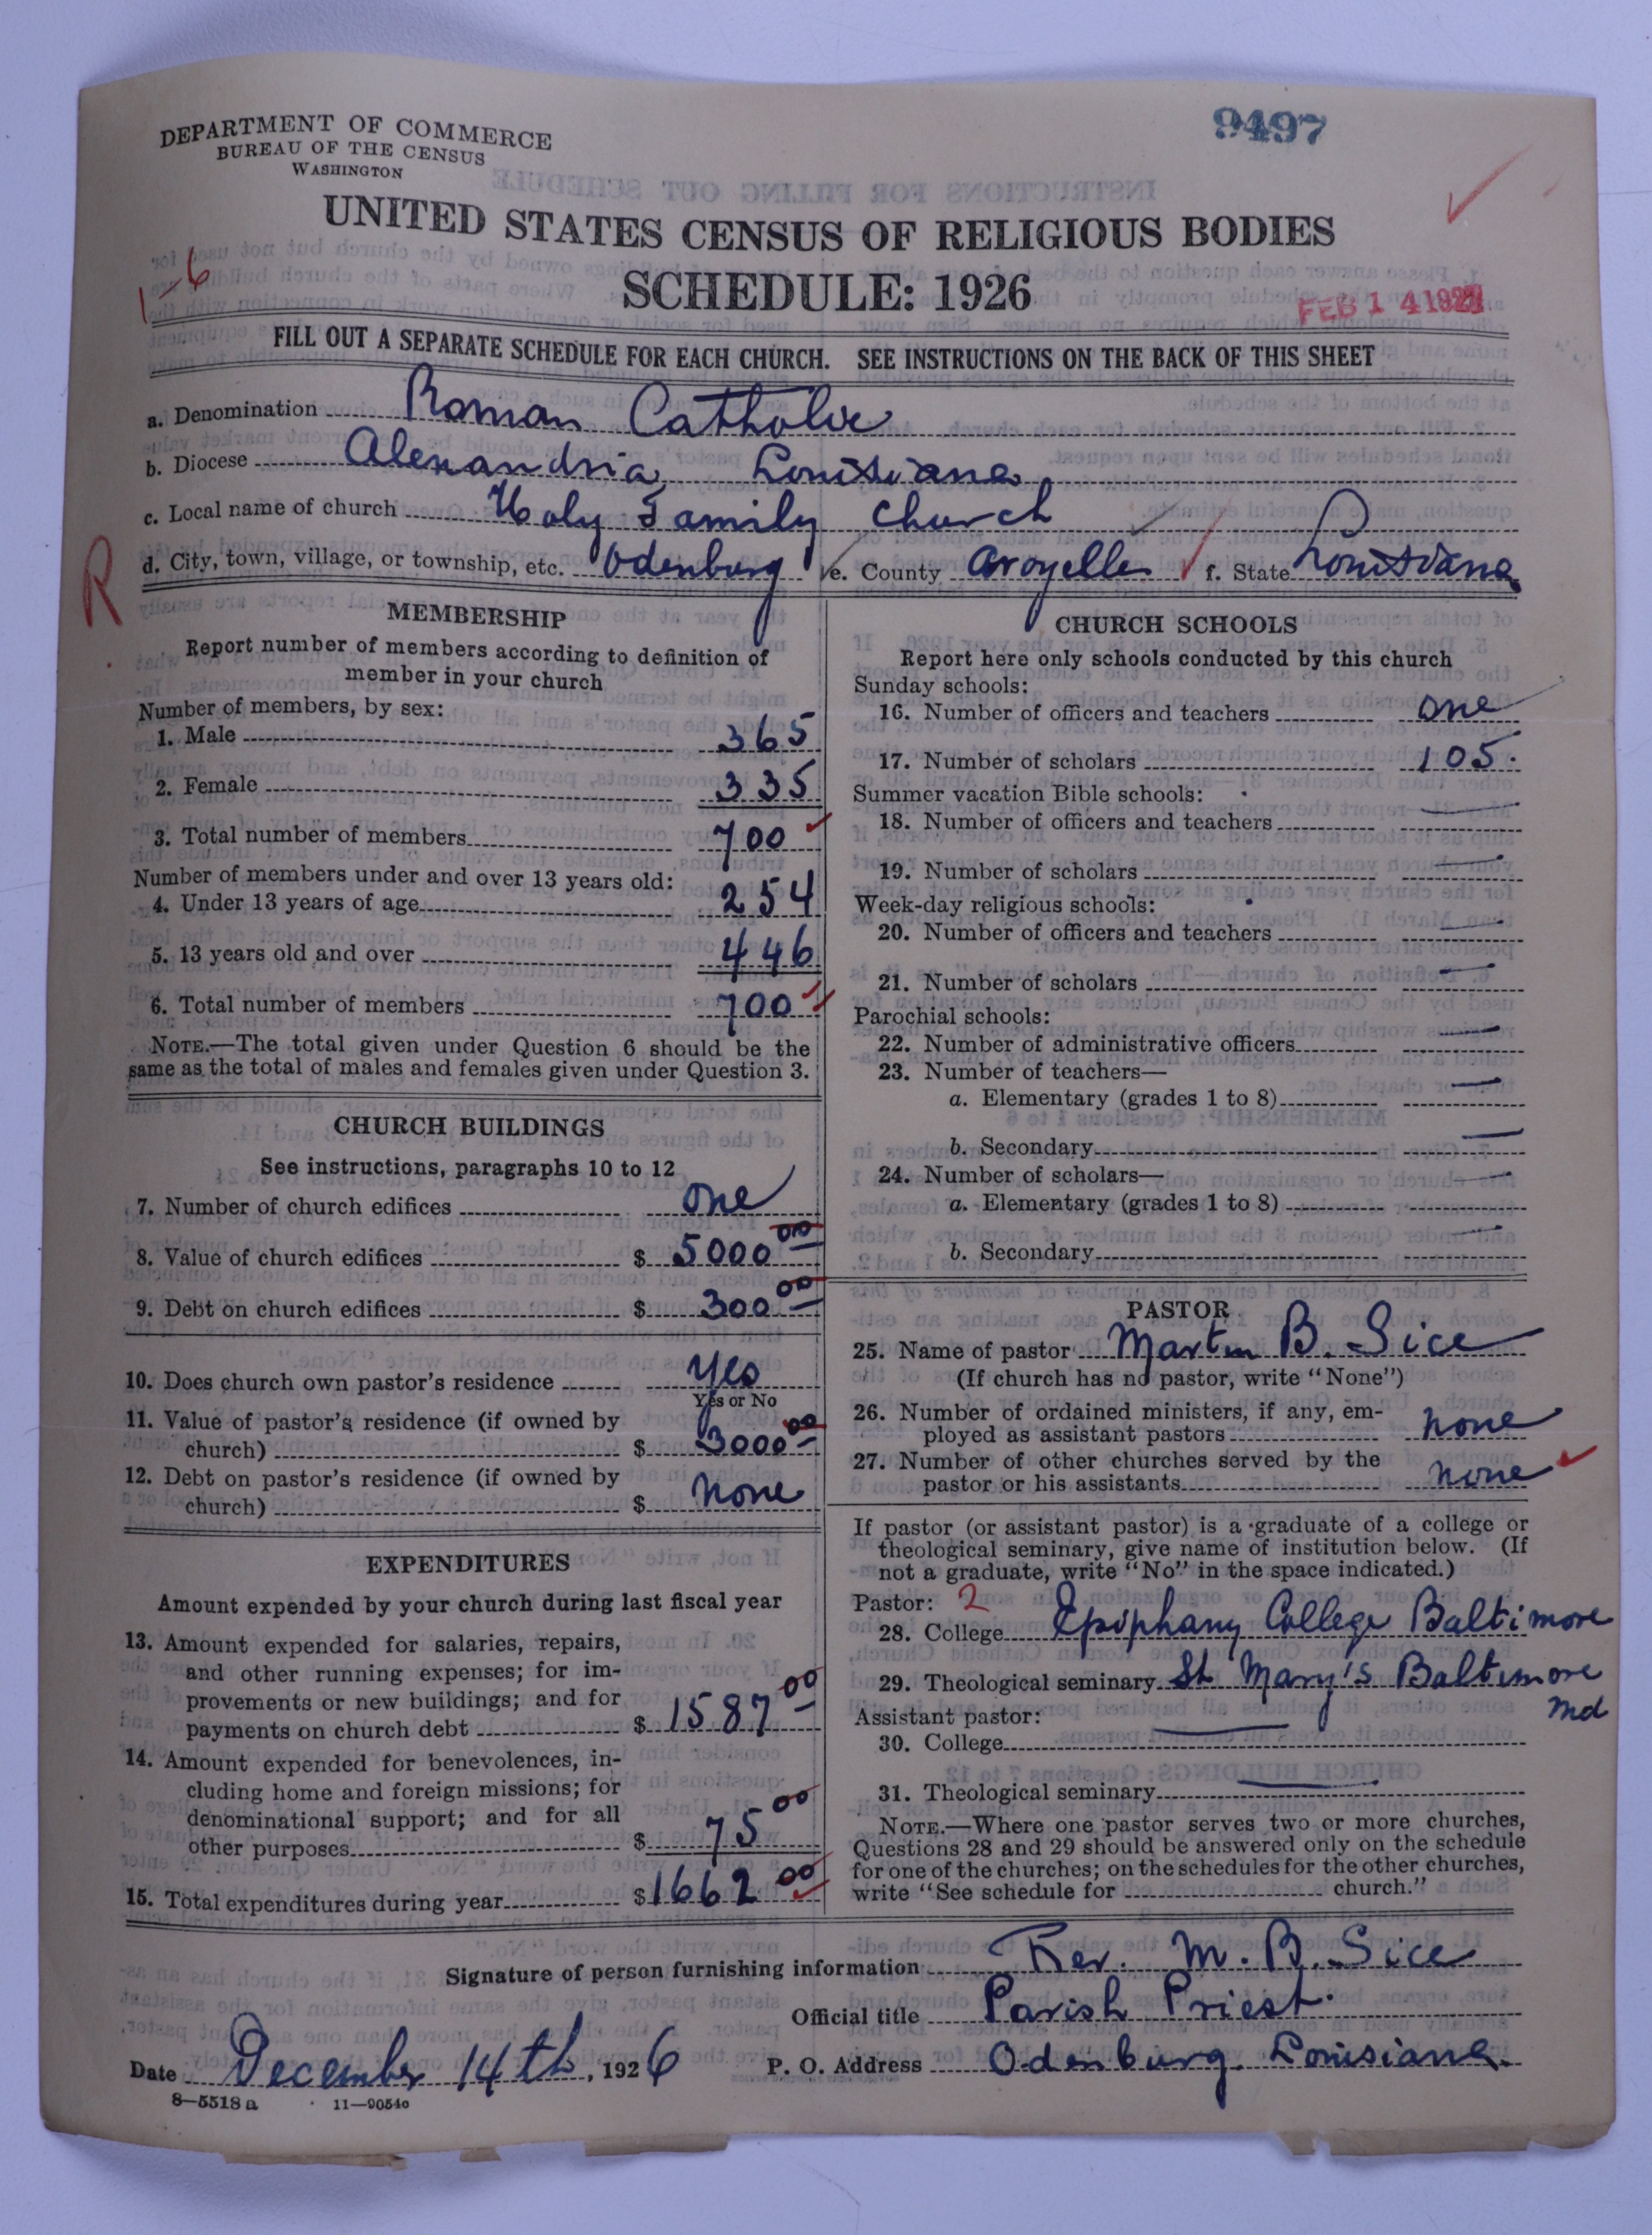 DEPARTMENT OF COMMERCE
BUREAU OF THE CENSUS
WASHINGTON
9497
UNITED STATES CENSUS OF RELIGIOUS BODIES
SCHEDULE: 1926
1-6
FEB 14 1927
FILL OUT A SEPARATE SCHEDULE FOR EACH CHURCH. SEE INSTRUCTIONS ON THE BACK OF THIS SHEET
a. Denomination Roman Catholic
b. Diocese Alexandria, Louisiana
c. Local name of church Holy Family Church
R
d. City, town, village, or township, etc. Odenburg e. County Avoyelles f. State Louisiana
MEMBERSHIP
Report number of members according to definition of
member in your church
Number of members, by sex:
1. Male 365
2. Female 335
3. Total number of members 700
Number of members under and over 13 years old:
4. Under 13 years of age 254
5. 13 years old and over 446
6. Total number of members 700
NOTE.—The total given under Question 6 should be the
same as the total of males and females given under Question 3.
CHURCH BUILDINGS
See instructions, paragraphs 10 to 12
7. Number of church edifices one
8. Value of church edifices $ 5000 00
9. Debt on church edifices $ 300 00
10. Does church own pastor's residence Yes
Yes or No
11. Value of pastor's residence (if owned by
church) $ 3000 00
12. Debt on pastor's residence (if owned by
church) $ none
EXPENDITURES
Amount expended by your church during last fiscal year
13. Amount expended for salaries, repairs,
and other running expenses; for im-
provements or new buildings; and for
payments on church debt $ 1587 00
14. Amount expended for benevolences, in-
cluding home and foreign missions; for
denominational support; and for all
other purposes $ 75 00
15. Total expenditures during year $ 1662 00
CHURCH SCHOOLS
Report here only schools conducted by this church
Sunday schools:
16. Number of officers and teachers one
17. Number of scholars 105.
Summer vacation Bible schools:
18. Number of officers and teachers —
19. Number of scholars —
Week-day religious schools:
20. Number of officers and teachers —
21. Number of scholars —
Parochial schools:
22. Number of administrative officers —
23. Number of teachers—
a. Elementary (grades 1 to 8) —
b. Secondary —
24. Number of scholars—
a. Elementary (grades 1 to 8) —
b. Secondary —
PASTOR
25. Name of pastor Martin B. Sice
(If church has no pastor, write "None")
26. Number of ordained ministers, if any, em-
ployed as assistant pastors none
27. Number of other churches served by the
pastor or his assistants none
If pastor (or assistant pastor) is a graduate of a college or
theological seminary, give name of institution below. (If
not a graduate, write "No" in the space indicated.)
Pastor: 2
28. College Epiphany College Baltimore
29. Theological seminary St Mary's Baltimore
Md
Assistant pastor:
30. College —
31. Theological seminary —
NOTE.—Where one pastor serves two or more churches,
Questions 28 and 29 should be answered only on the schedule
for one of the churches; on the schedules for the other churches,
write "See schedule for church."
Signature of person furnishing information Rev. M. B. Sice
Official title Parish Priest.
Date December 14th, 1926 P. O. Address Odenburg Louisiana.
8—5518 a 11—9054c